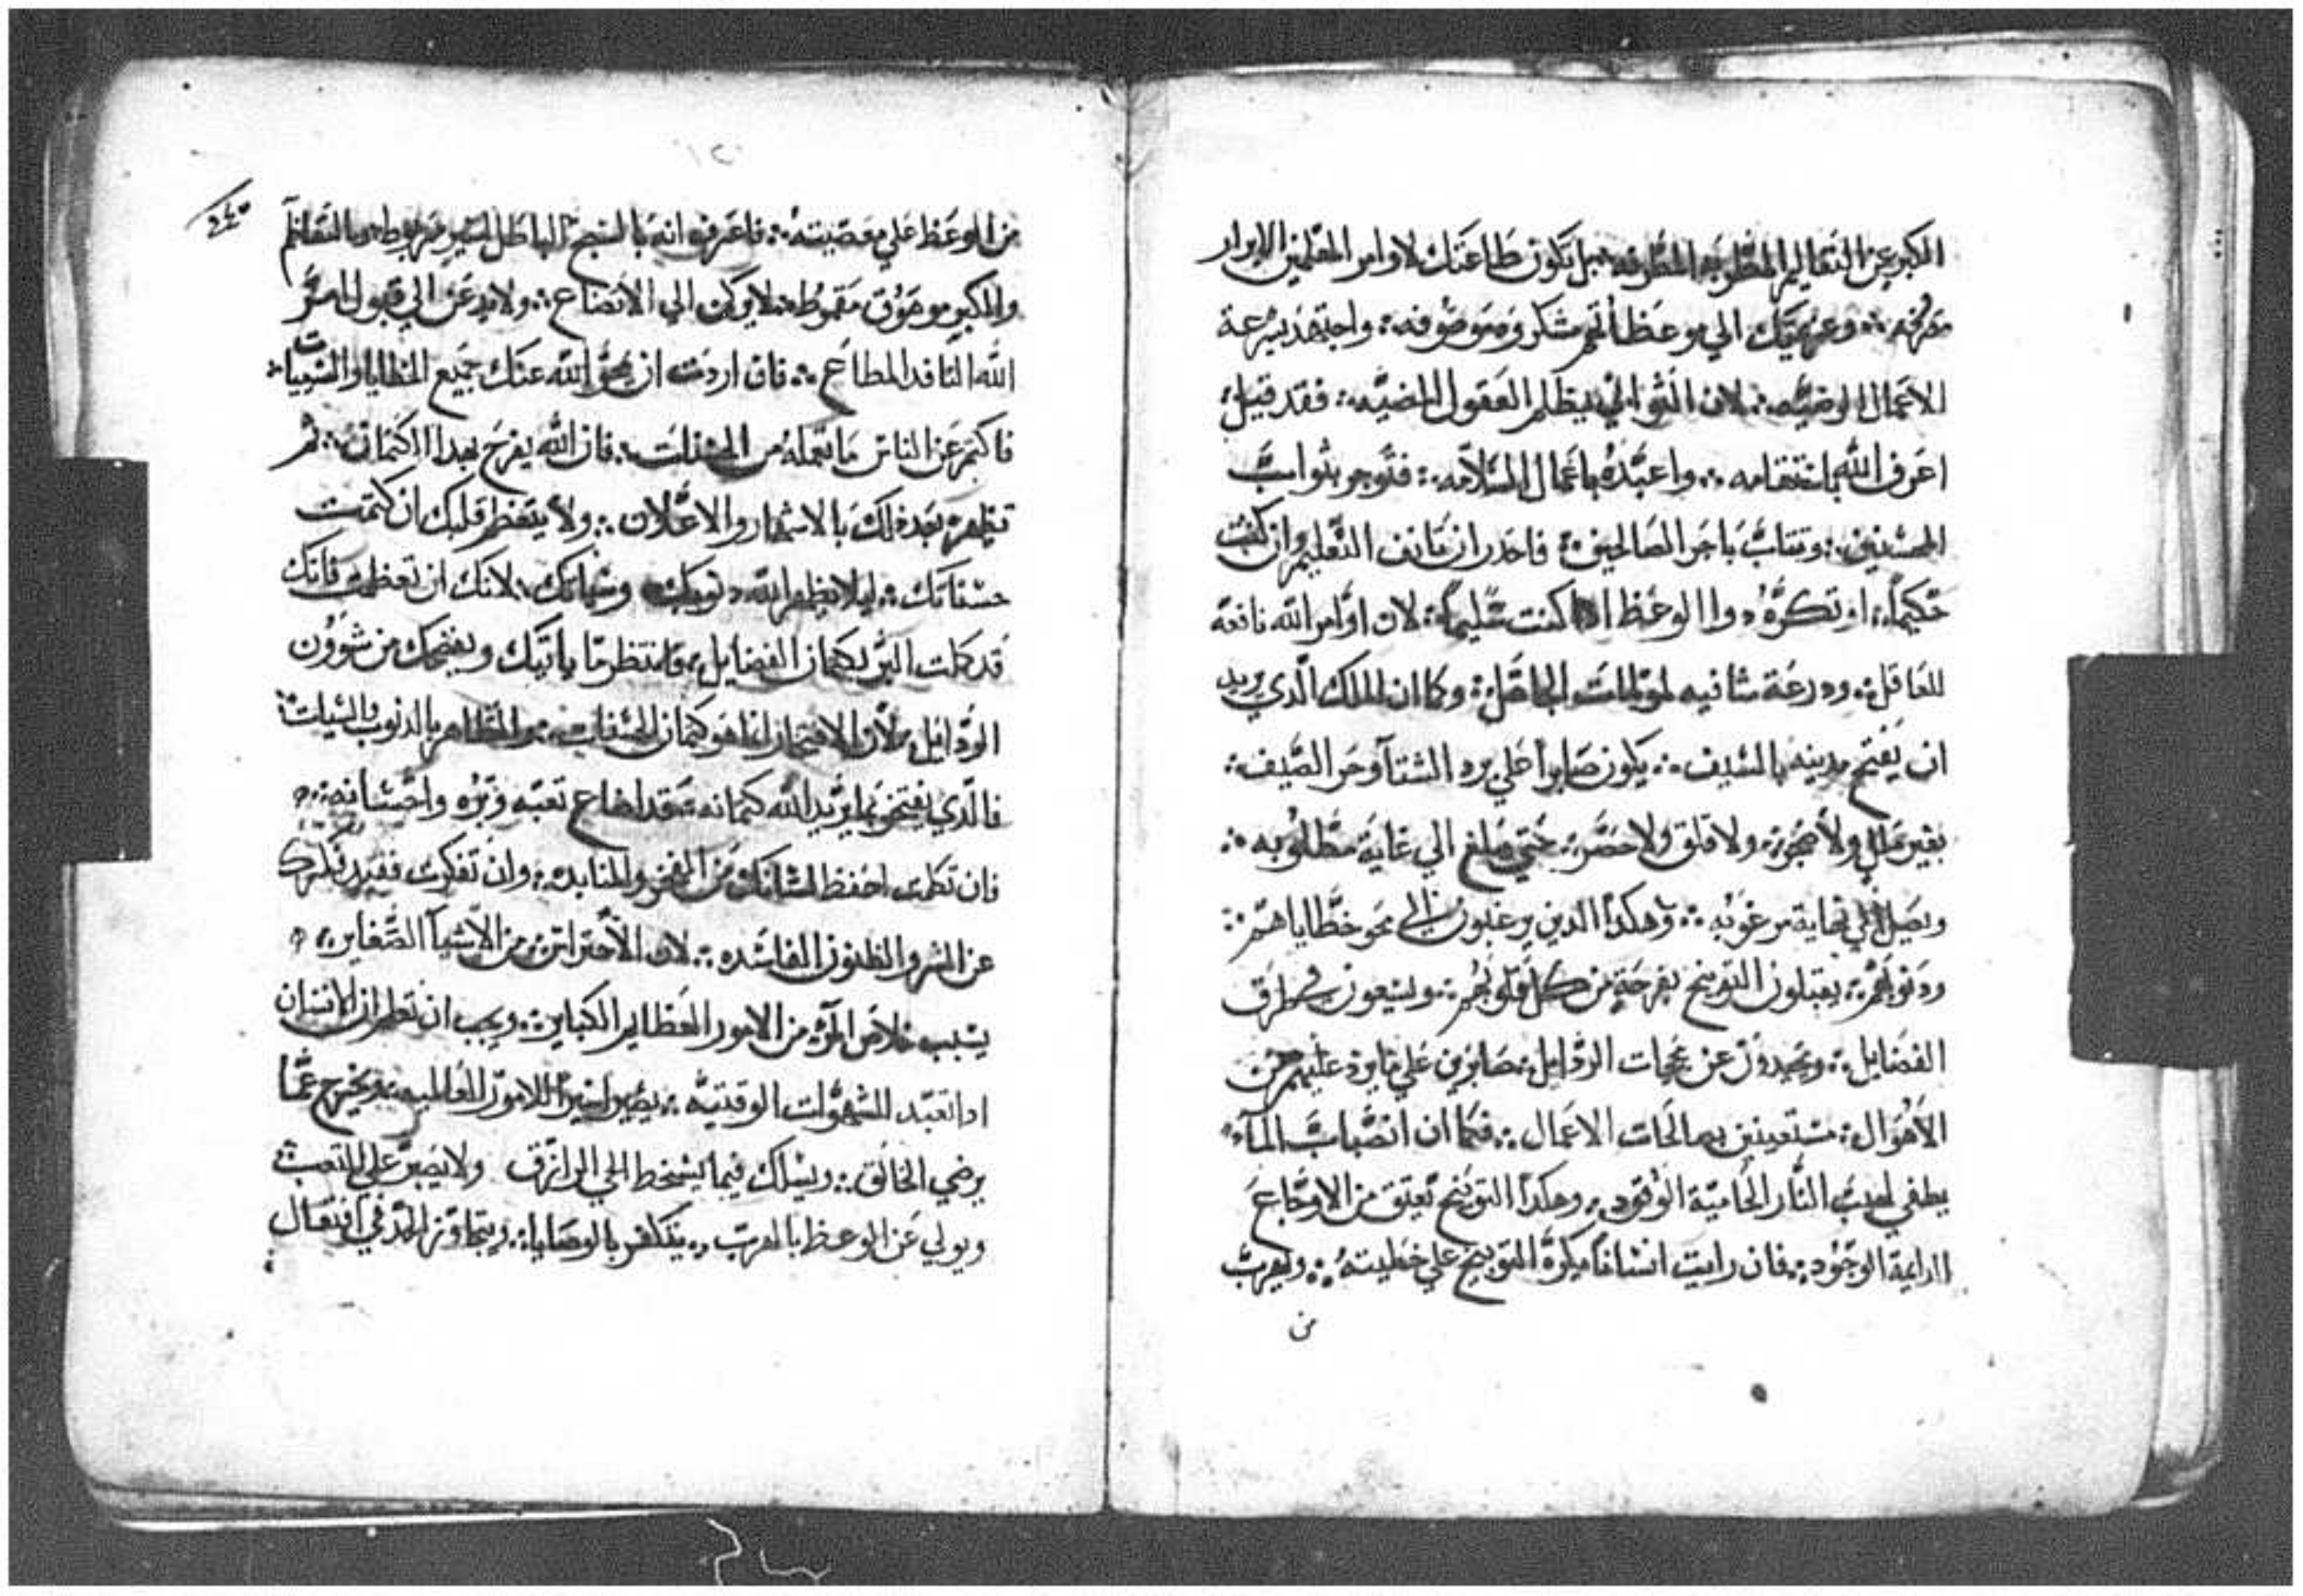 الكبر عن التعاليم المطلوبه بل تكون طاعتك لاوامر المعلمين الابرار
الي مواعظاتهم مشكوره موصوفه: واجتهد بسرعة
الاعمال المرضيه: لان التواني يظلم العقول المضيه: فقد قيل:
اعرف الله بانتقامه: واعبده باعمال السلامه: فتوجر بثواب
المحسنين: وتتاب باجر الصالحين: فاحدر ان تانف التعليم وان كنت
حكيماً: او تكره دوا الوعظ ادا كنت سليماً: لان اوامر الله نافعه
للعاقل: ودرعة الجاهل: وكما ان الملك الدي يريد
ان يفتح مدينه بالسيف: يكون صابراً علي برد الشتآ وحر الصيف:
بغير ملل ولا ضجر: ولا قلق ولا حصر: حتي يبلغ الي غاية مطلوبه:
ويصل الي نهاية مرغوبه: وهكدا الدين يرغبون الي محو خطاياهم:
ودنوبهم: يقبلون التوبيخ بفرحة من كل قلوبهم: ويسعون في طرق
الفضايل: ويحيدون عن الردايل: صابرين علي ما يرد عليهم من
الاهوال: مستعينين بصالحات الاعمال: فكما ان انصباب المآء
يطفي لهيب النار الحامية الوقود: وهكدا التوبيخ تعتق من الاوجاع
الدايمة الوجود: فان رايت انساناً يكره التوبيخ علي خطيته: ويهرب
من
من الوعظ علي معصيته: فاعرف انه الباطل مربوط: وبالتعاظم
والكبر موثوق مقموط: لا يركن الي الاتضاع: ولا يدعن الي قبول امر
الله النافد المطاع: فان اردت ان يمحو الله عنك جميع الخطايا والسيات:
فاكتم عن الناس ما تعمله من الحسنات: فان الله يفرح بهدا الكتمان: ثم
يظهره بعد دلك بالاشهار والاعلان: ولا يتعظم قلبك ان كتمت
حسناتك: ليلا يظهر الله دنوبك وسياتك: لانك ان تعظمت فانك
قد كملت البر بكتمان الفضايل: فانتظر ما ياتيك ويفضحك من شوون
الردايل: لان الافتخار انما هو كتمان الحسنات: والتظاهر بالدنوب والسيات:
فالدي يفتخر بما يريد الله كتمانه: فقد اضاع تعبه وبره واحسانه:
فان تكلمت احفظ لسانك من الفخر والمنابده: وان تفكرت فقيد فكرك
عن الشر والظنون الفاسده: لان الاحتراس من الاشيآ الصغاير:
يسبب خلاص المرء من الامور العظايم الكباير: ويجب ان تعلم ان الانسان
ادا تعبد للشهوات الوقتيه: يصير اسيراً للامور العالميه: ويخرج عما
يرضي الخالق: ويسلك فيما يسخط الحي الرازق ولا يصبر علي التعب:
ويولي عن الوعظ بالهرب: بالوصايا: ويتجاوز الحد في افتعال